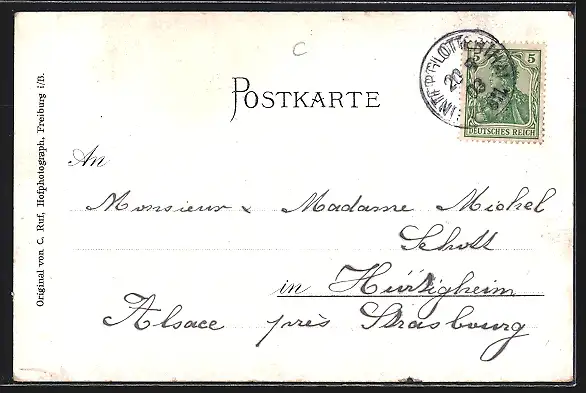 C
POSTKARTE
5 5
DEUTSCHES REICH
An
Monsieur & Madame Michel
Schott
in Hürtigheim
Alsace près Strasbourg
Original von C. Ruf, Hofphotograph, Freiburg i/B.